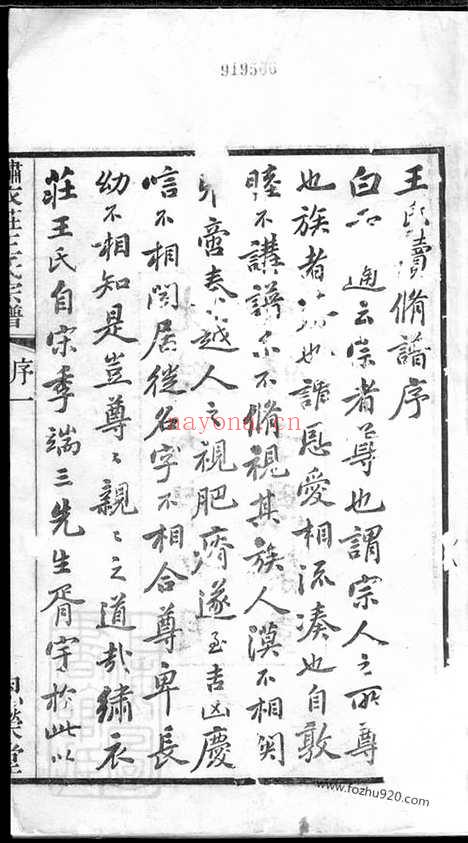 919566
王氏續脩譜序
白虎通云宗者尊也謂宗人之所尊
也族者湊也謂恩愛相流湊也自敦
睦不講譜系不脩視其族人漠不相関
不啻秦越人之視肥瘠遂至吉凶慶
唁不相関居徙名字不相合尊卑長
幼不相知是豈尊〻親〻之道哉繡衣
莊王氏自宋季端三先生胥宇於此以
繡衣莊王氏宗譜
序一
nayona.cn
www.fozhu920.com